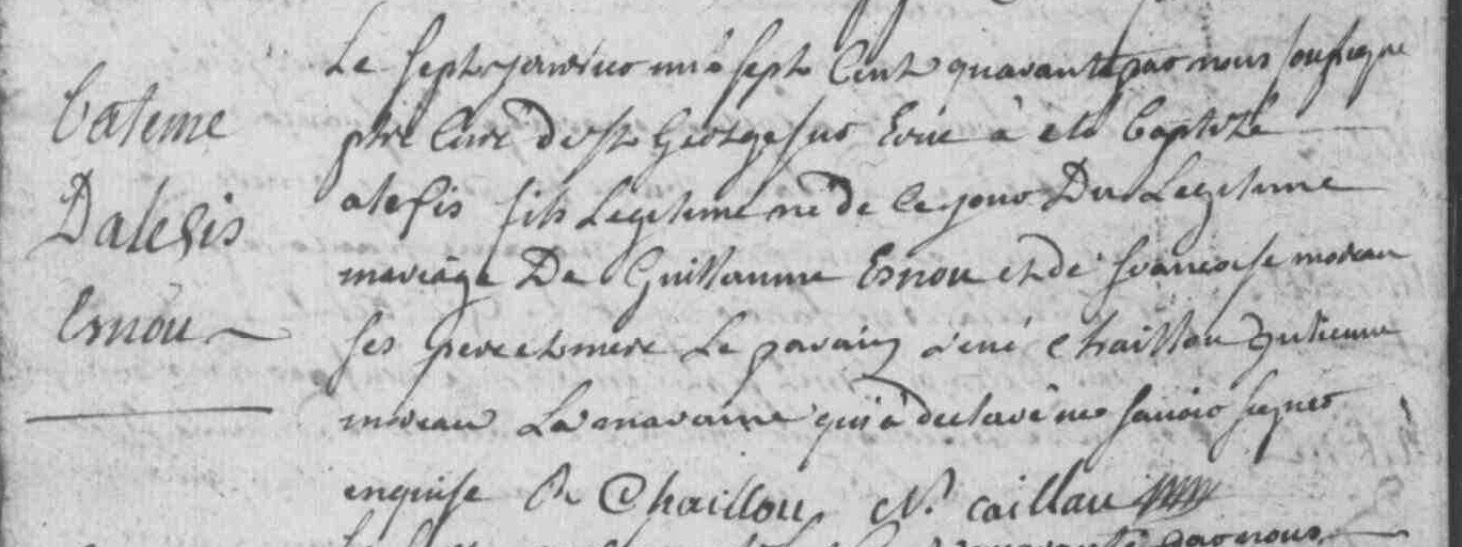 Bateme
Dalesis
Esnou
Le sept janvier mil sept Cent quarante par nous soussigne
ptre Curé de St George sur Erve à eté baptizé
alesis fils Legitime né de ce jour Du Legitime
mariage De Guillaume Esnou et de francoise moreau
ses pere et mere Le parain rené chaillou
moreau La maraine qui à declaré ne savoir signer
enquise R Chaillou N. caillau
quarante par nous